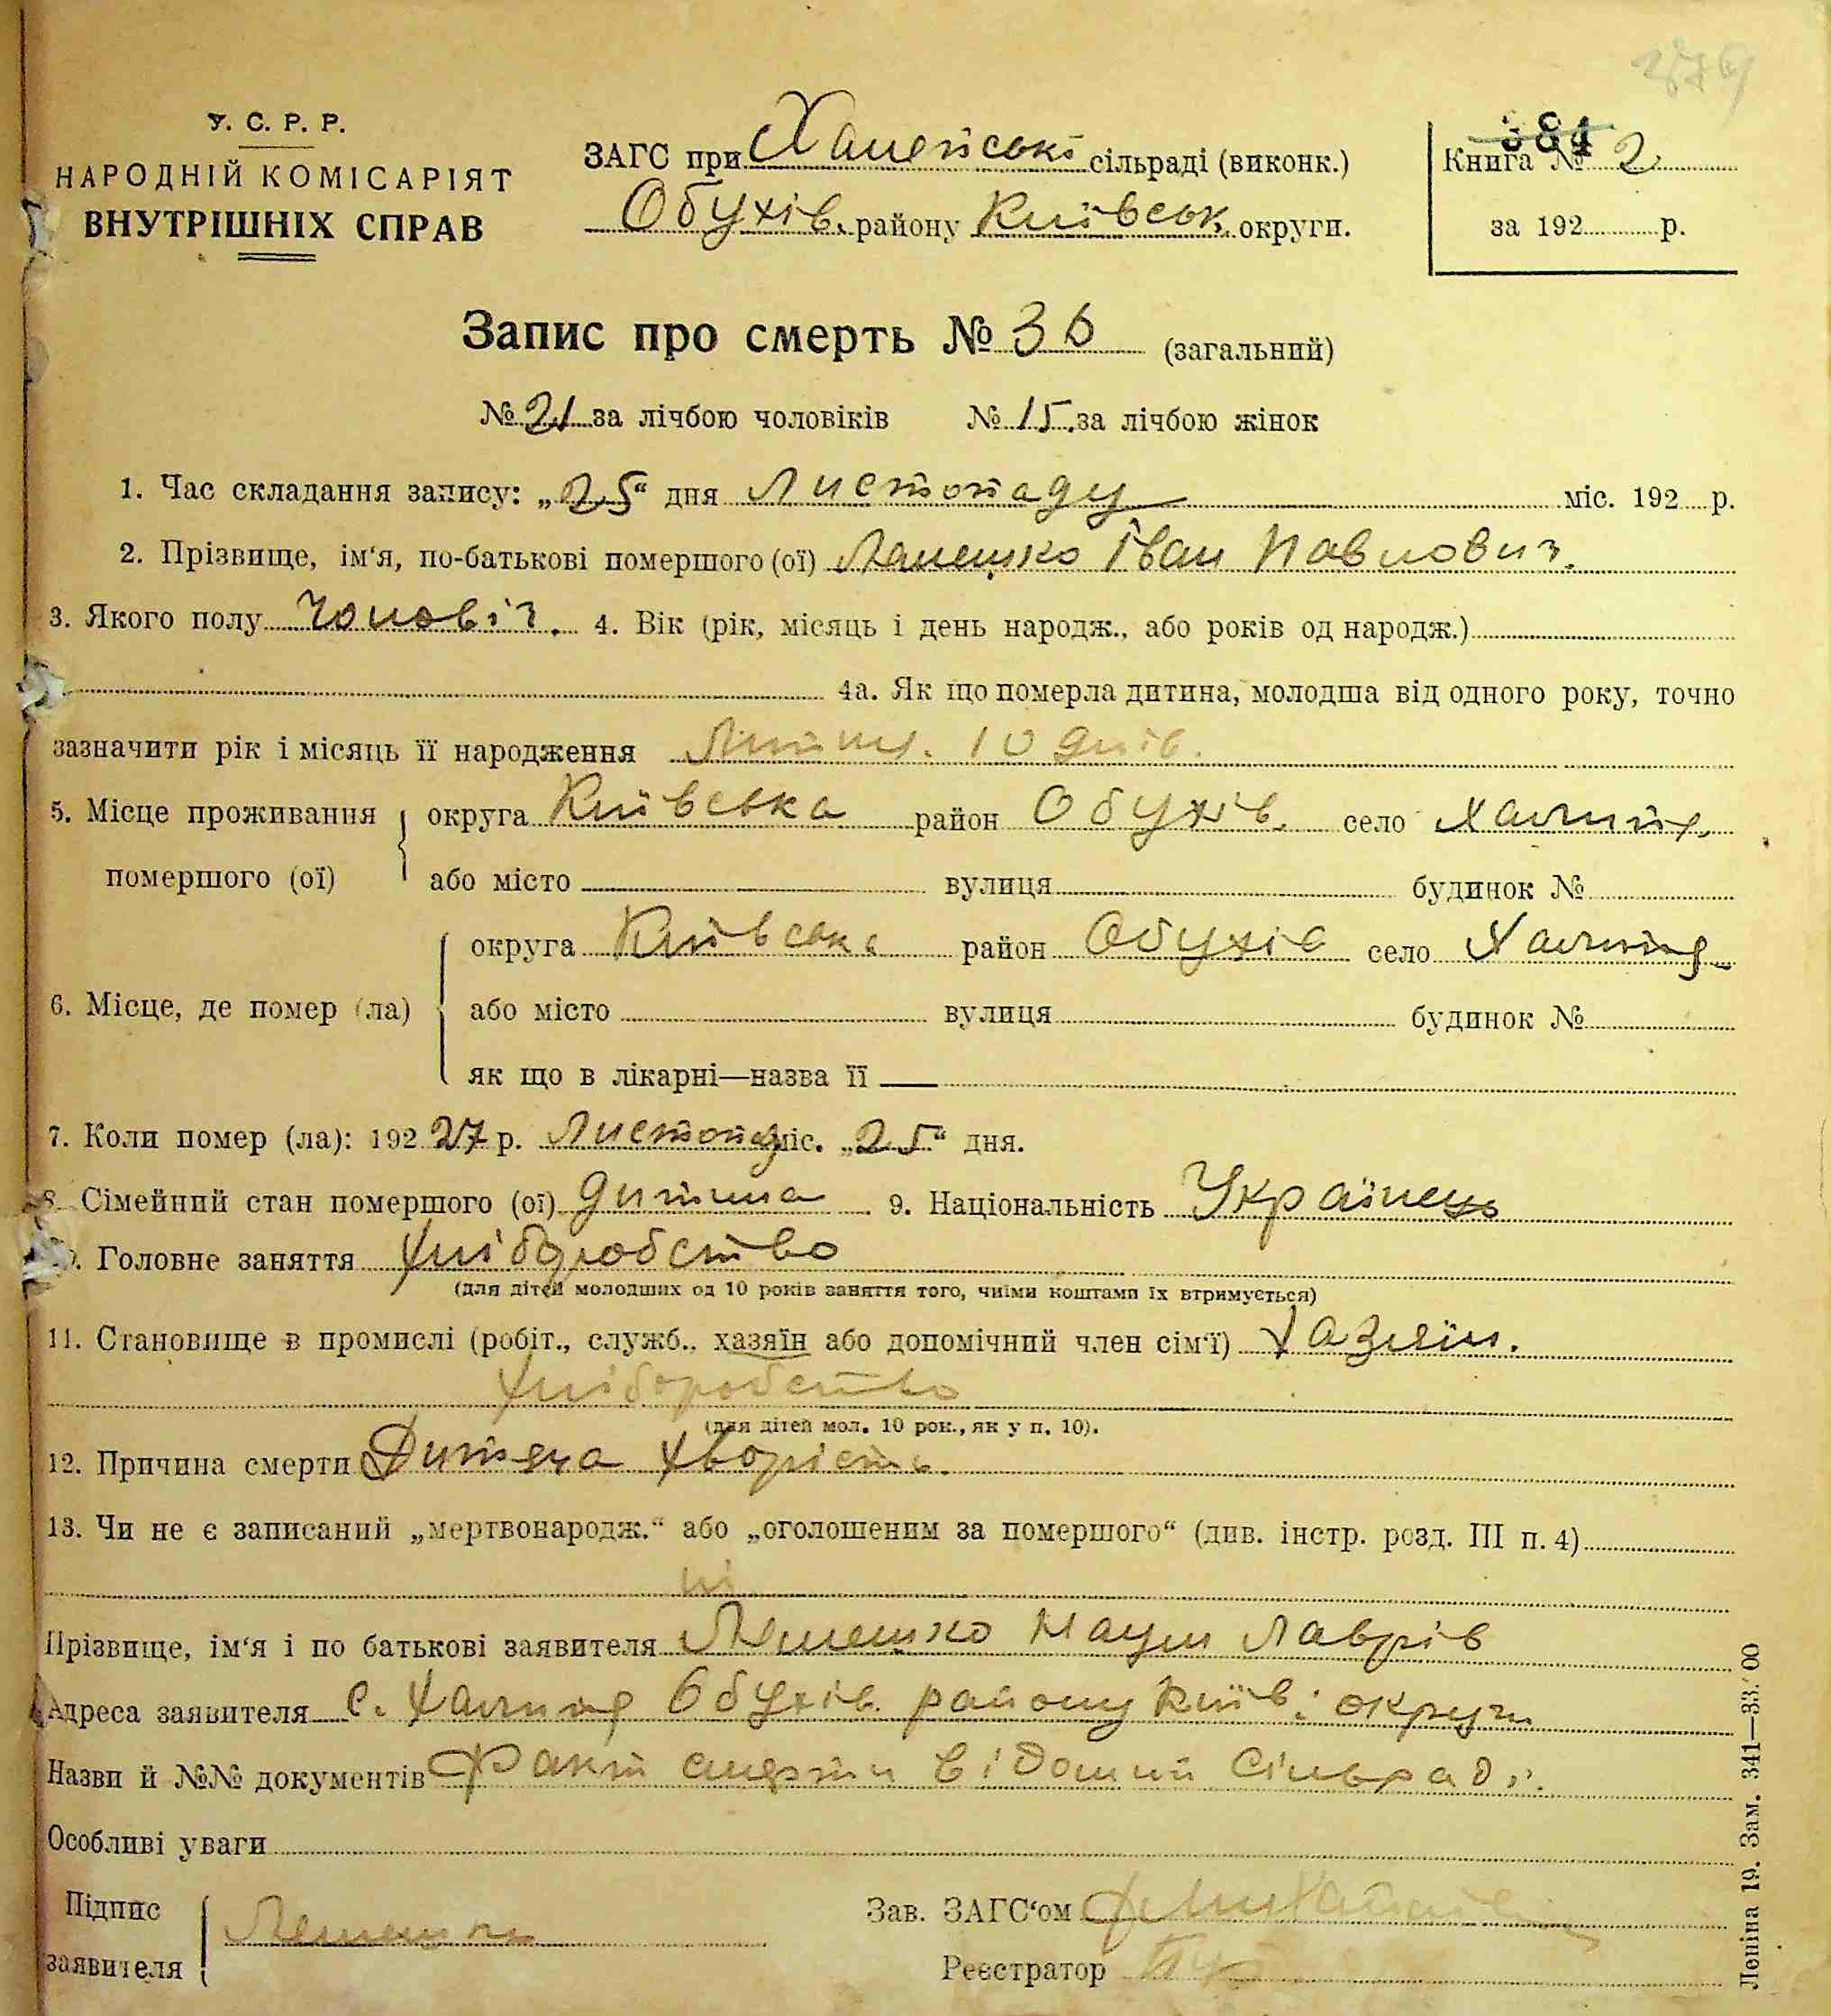 У. С. Р. Р.
НАРОДНІЙ КОМІСАРІЯТ
ВНУТРІШНІХ СПРАВ
ЗАГС при сільраді (виконк.)
Обухів. району Київськ. округи.
384
Книга № 2
за 192 р.
Запис про смерть № 36 (загальний)
№ 21 за лічбою чоловіків № 15 за лічбою жінок
1. Час складання запису: „25“ дня Листопаду міс. 192 р.
2. Прізвище, ім‘я, по-батькові помершого (ої) Іван Павлович.
3. Якого полу Чоловіч. 4. Вік (рік, місяць і день народж., або років од народж.)
4а. Як що померла дитина, молодша від одного року, точно
зазначити рік і місяць її народження 10 днів.
5. Місце проживання помершого (ої) округа Київська район Обухів. село
або місто вулиця будинок №
6. Місце, де помер (ла) округа Київська район Обухів село
або місто вулиця будинок №
як що в лікарні—назва її —
7. Коли помер (ла): 192 27 р. Листопад міс. „25“ дня.
8. Сімейний стан помершого (ої) дитина 9. Національність Українець
10. Головне заняття хліборобство
(для дітей молодших од 10 років заняття того, чиїми коштами їх втримується)
11. Становище в промислі (робіт., служб., хазяїн або допомічний член сім‘ї) хазяїн.
хліборобство
(для дітей мол. 10 рок., як у п. 10).
12. Причина смерти Дитяча хворість.
13. Чи не є записаний „мертвонародж.“ або „оголошеним за помершого“ (див. інстр. розд. III п. 4)
ні
Прізвище, ім‘я і по батькові заявителя Наум Лаврів
Адреса заявителя с. Обухів. району Київ. округи
Назви й №№ документів Факт смерти відомий Сільраді.
Особливі уваги
Підпис заявителя
Зав. ЗАГС‘ом
Реєстратор
Леніна 19. Зам. 341—33.